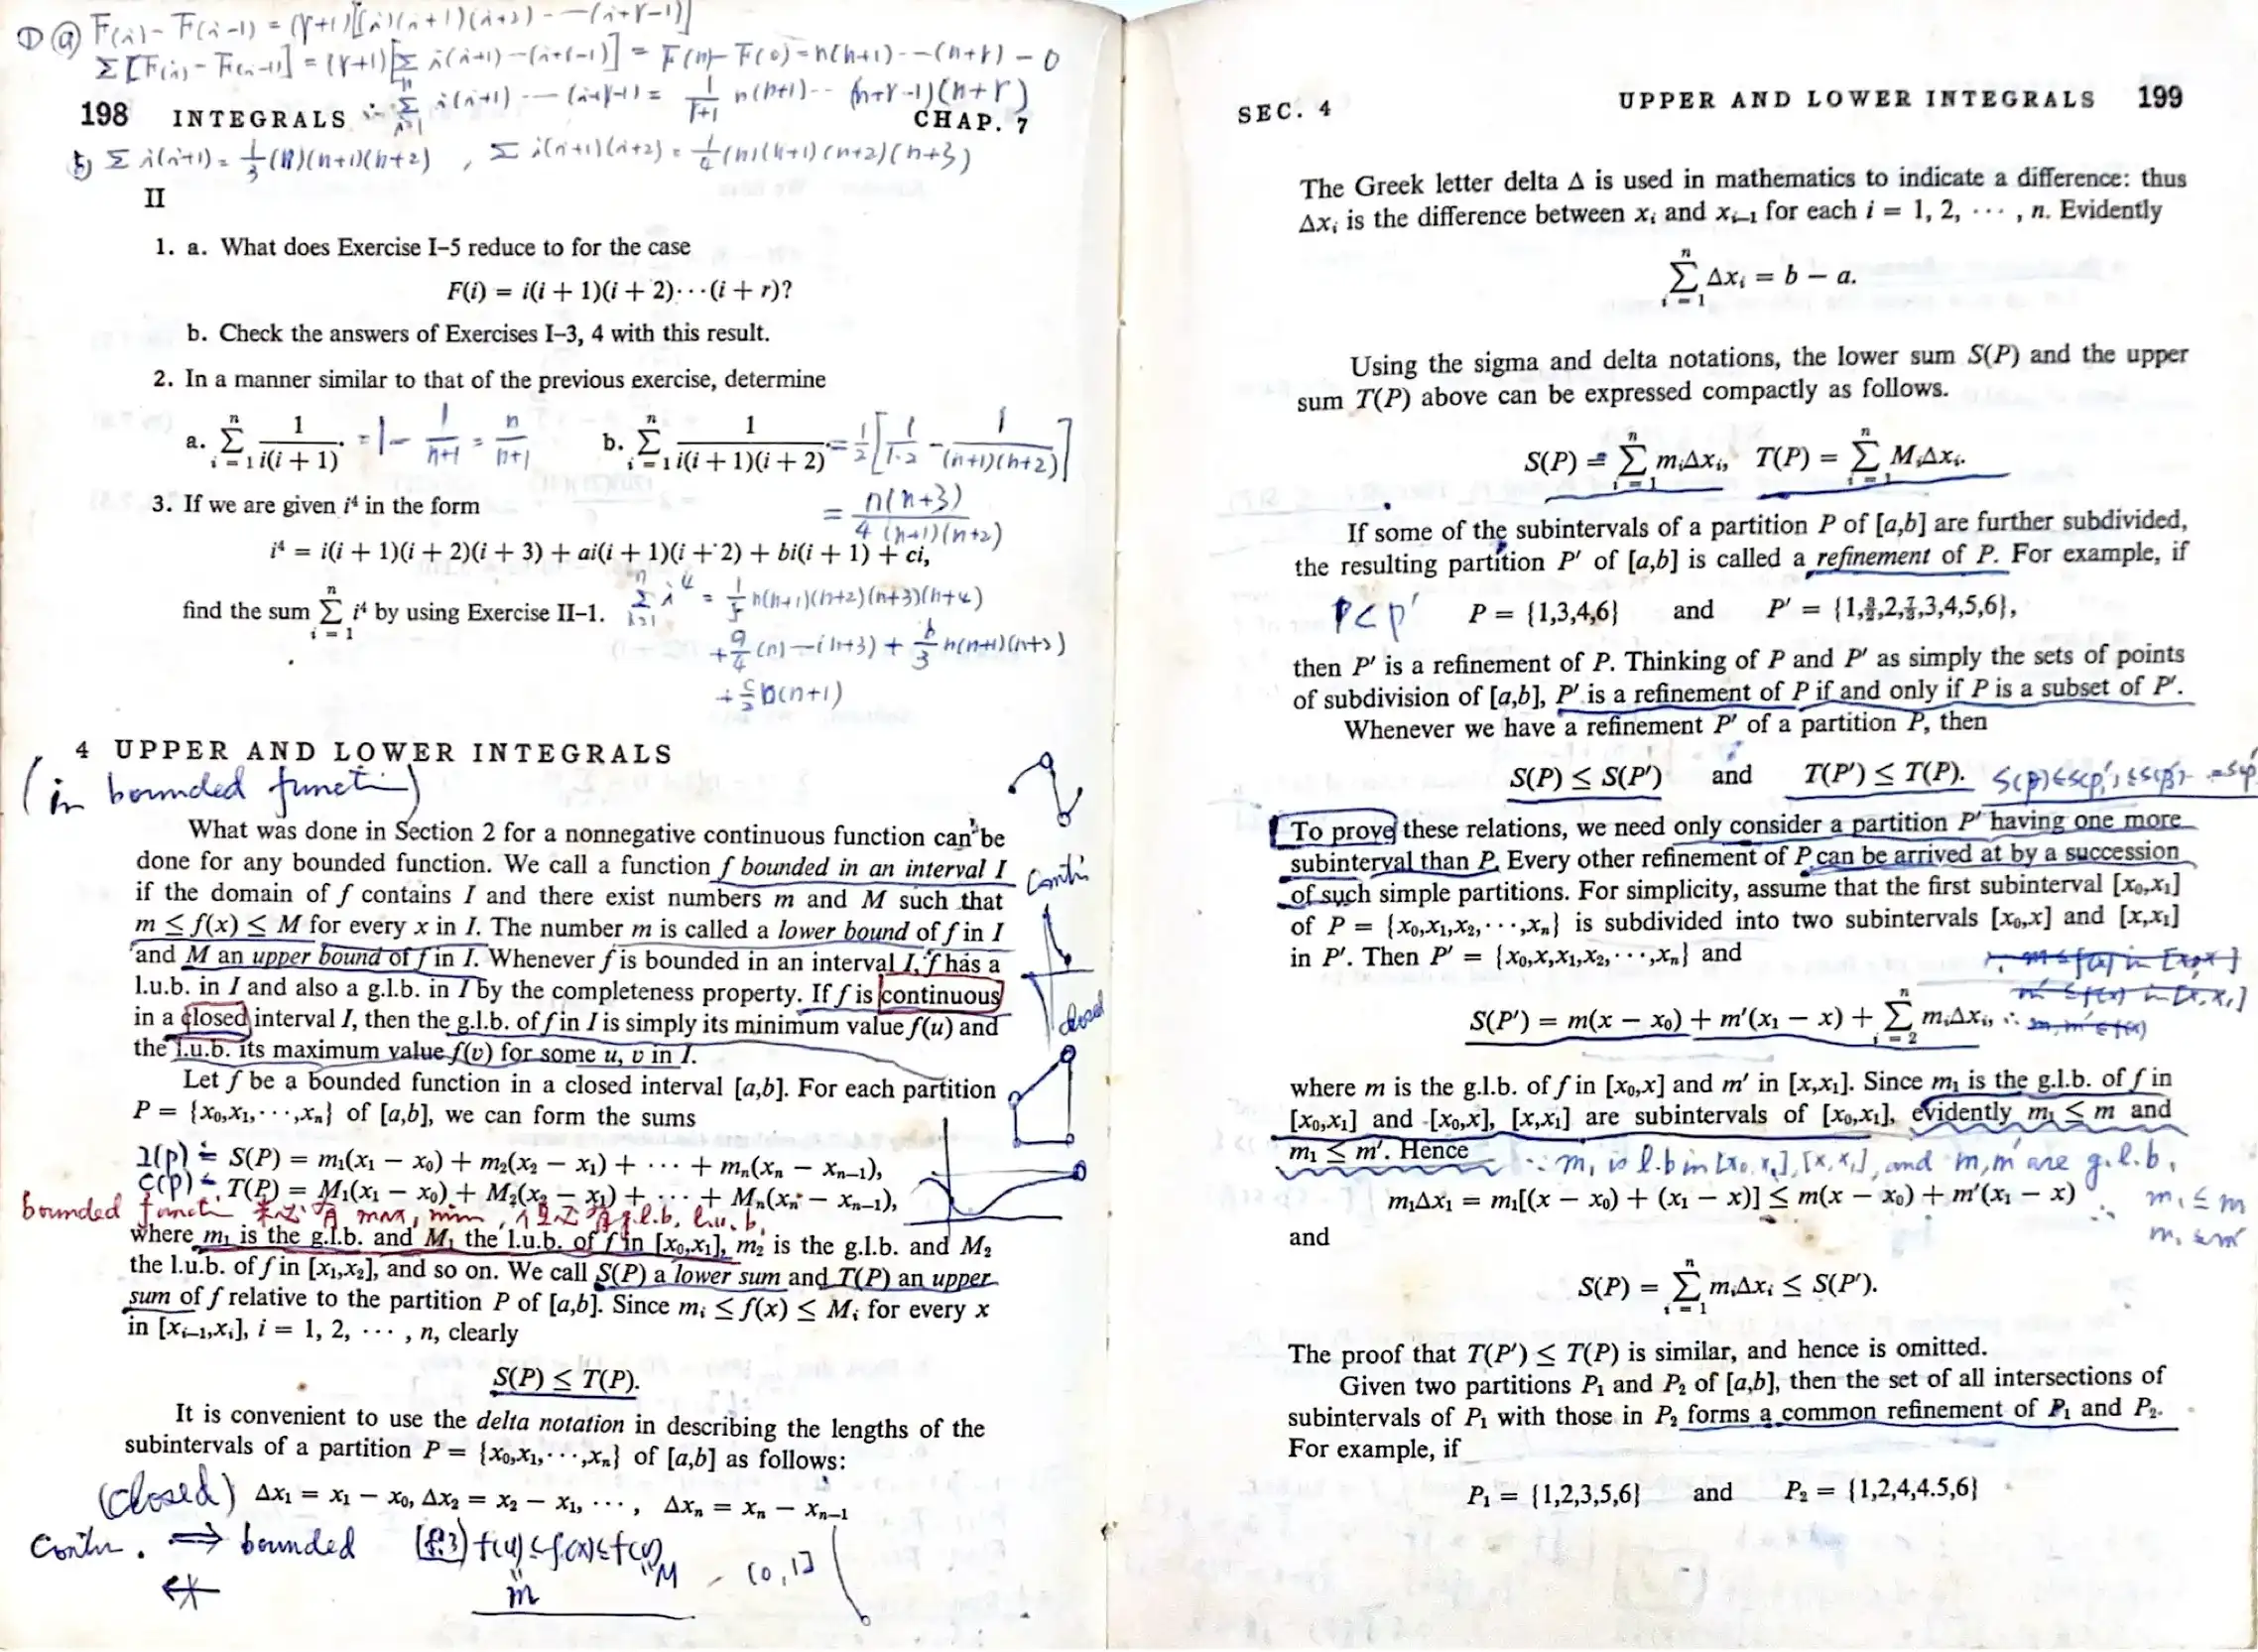 ① ⓐ F(i) - F(i-1) = (r+1)[(i)(i+1)(i+2)---(i+r-1)]
Σ[F(i) - F(i-1)] = (r+1)[Σ i(i+1)---(i+r-1)] = F(n) - F(0) = n(n+1)---(n+r) - 0
∴ Σ i(i+1)----(i+r-1) = 1/(r+1) n(n+1)-- (n+r-1)(n+r)
198 INTEGRALS CHAP. 7
b) Σ i(i+1) = 1/3 (n)(n+1)(n+2) , Σ i(i+1)(i+2) = 1/4 (n)(n+1)(n+2)(n+3)
II
1. a. What does Exercise I–5 reduce to for the case
F(i) = i(i + 1)(i + 2)···(i + r)?
b. Check the answers of Exercises I–3, 4 with this result.
2. In a manner similar to that of the previous exercise, determine
a. Σ_{i=1}^{n} 1/(i(i + 1)). = 1 - 1/(n+1) = n/(n+1) b. Σ_{i=1}^{n} 1/(i(i + 1)(i + 2)). = 1/2 [1/(1·2) - 1/((n+1)(n+2))]
= n(n+3)/(4(n+1)(n+2))
3. If we are given i⁴ in the form
i⁴ = i(i + 1)(i + 2)(i + 3) + ai(i + 1)(i + 2) + bi(i + 1) + ci,
find the sum Σ_{i=1}^{n} i⁴ by using Exercise II–1.
Σ_{i=1}^{n} i⁴ = 1/5 n(n+1)(n+2)(n+3)(n+4)
+ a/4 (n)---(n+3) + b/3 n(n+1)(n+2)
+ c/2 n(n+1)
4 UPPER AND LOWER INTEGRALS
(in bounded function)
What was done in Section 2 for a nonnegative continuous function can be
done for any bounded function. We call a function f bounded in an interval I
if the domain of f contains I and there exist numbers m and M such that
m ≤ f(x) ≤ M for every x in I. The number m is called a lower bound of f in I
and M an upper bound of f in I. Whenever f is bounded in an interval I, f has a
l.u.b. in I and also a g.l.b. in I by the completeness property. If f is continuous
in a closed interval I, then the g.l.b. of f in I is simply its minimum value f(u) and
the l.u.b. its maximum value f(v) for some u, v in I.
conti
closed
Let f be a bounded function in a closed interval [a,b]. For each partition
P = {x₀,x₁,···,xₙ} of [a,b], we can form the sums
S(P) = m₁(x₁ − x₀) + m₂(x₂ − x₁) + ··· + mₙ(xₙ − xₙ₋₁),
T(P) = M₁(x₁ − x₀) + M₂(x₂ − x₁) + ··· + Mₙ(xₙ − xₙ₋₁),
bounded funct 未必有 max, min, 但必有 g.l.b, l.u.b.
where m₁ is the g.l.b. and M₁ the l.u.b. of f in [x₀,x₁], m₂ is the g.l.b. and M₂
the l.u.b. of f in [x₁,x₂], and so on. We call S(P) a lower sum and T(P) an upper
sum of f relative to the partition P of [a,b]. Since mᵢ ≤ f(x) ≤ Mᵢ for every x
in [xᵢ₋₁,xᵢ], i = 1, 2, ··· , n, clearly
S(P) ≤ T(P).
It is convenient to use the delta notation in describing the lengths of the
subintervals of a partition P = {x₀,x₁,···,xₙ} of [a,b] as follows:
(closed) Δx₁ = x₁ − x₀, Δx₂ = x₂ − x₁, ··· , Δxₙ = xₙ − xₙ₋₁
Contin. ⟹ bounded f(u) ≤ f(x) ≤ f(v) (0,1]
m M
SEC. 4 UPPER AND LOWER INTEGRALS 199
The Greek letter delta Δ is used in mathematics to indicate a difference: thus
Δxᵢ is the difference between xᵢ and xᵢ₋₁ for each i = 1, 2, ··· , n. Evidently
Σ_{i=1}^{n} Δxᵢ = b − a.
Using the sigma and delta notations, the lower sum S(P) and the upper
sum T(P) above can be expressed compactly as follows.
S(P) = Σ_{i=1}^{n} mᵢΔxᵢ, T(P) = Σ_{i=1}^{n} MᵢΔxᵢ.
If some of the subintervals of a partition P of [a,b] are further subdivided,
the resulting partition P′ of [a,b] is called a refinement of P. For example, if
P<P′ P = {1,3,4,6} and P′ = {1,3/2,2,7/3,3,4,5,6},
then P′ is a refinement of P. Thinking of P and P′ as simply the sets of points
of subdivision of [a,b], P′ is a refinement of P if and only if P is a subset of P′.
Whenever we have a refinement P′ of a partition P, then
S(P) ≤ S(P′) and T(P′) ≤ T(P).
To prove these relations, we need only consider a partition P′ having one more
subinterval than P. Every other refinement of P can be arrived at by a succession
of such simple partitions. For simplicity, assume that the first subinterval [x₀,x₁]
of P = {x₀,x₁,x₂,···,xₙ} is subdivided into two subintervals [x₀,x] and [x,x₁]
in P′. Then P′ = {x₀,x,x₁,x₂,···,xₙ} and
S(P′) = m(x − x₀) + m′(x₁ − x) + Σ_{i=2}^{n} mᵢΔxᵢ,
where m is the g.l.b. of f in [x₀,x] and m′ in [x,x₁]. Since m₁ is the g.l.b. of f in
[x₀,x₁] and [x₀,x], [x,x₁] are subintervals of [x₀,x₁], evidently m₁ ≤ m and
m₁ ≤ m′. Hence ∵ m₁ is l.b in [x₀,x₁], [x,x₁], and m,m′ are g.l.b.
m₁Δx₁ = m₁[(x − x₀) + (x₁ − x)] ≤ m(x − x₀) + m′(x₁ − x) ∴ m₁ ≤ m
and m₁ ≤ m′
S(P) = Σ_{i=1}^{n} mᵢΔxᵢ ≤ S(P′).
The proof that T(P′) ≤ T(P) is similar, and hence is omitted.
Given two partitions P₁ and P₂ of [a,b], then the set of all intersections of
subintervals of P₁ with those in P₂ forms a common refinement of P₁ and P₂.
For example, if
P₁ = {1,2,3,5,6} and P₂ = {1,2,4,4.5,6}